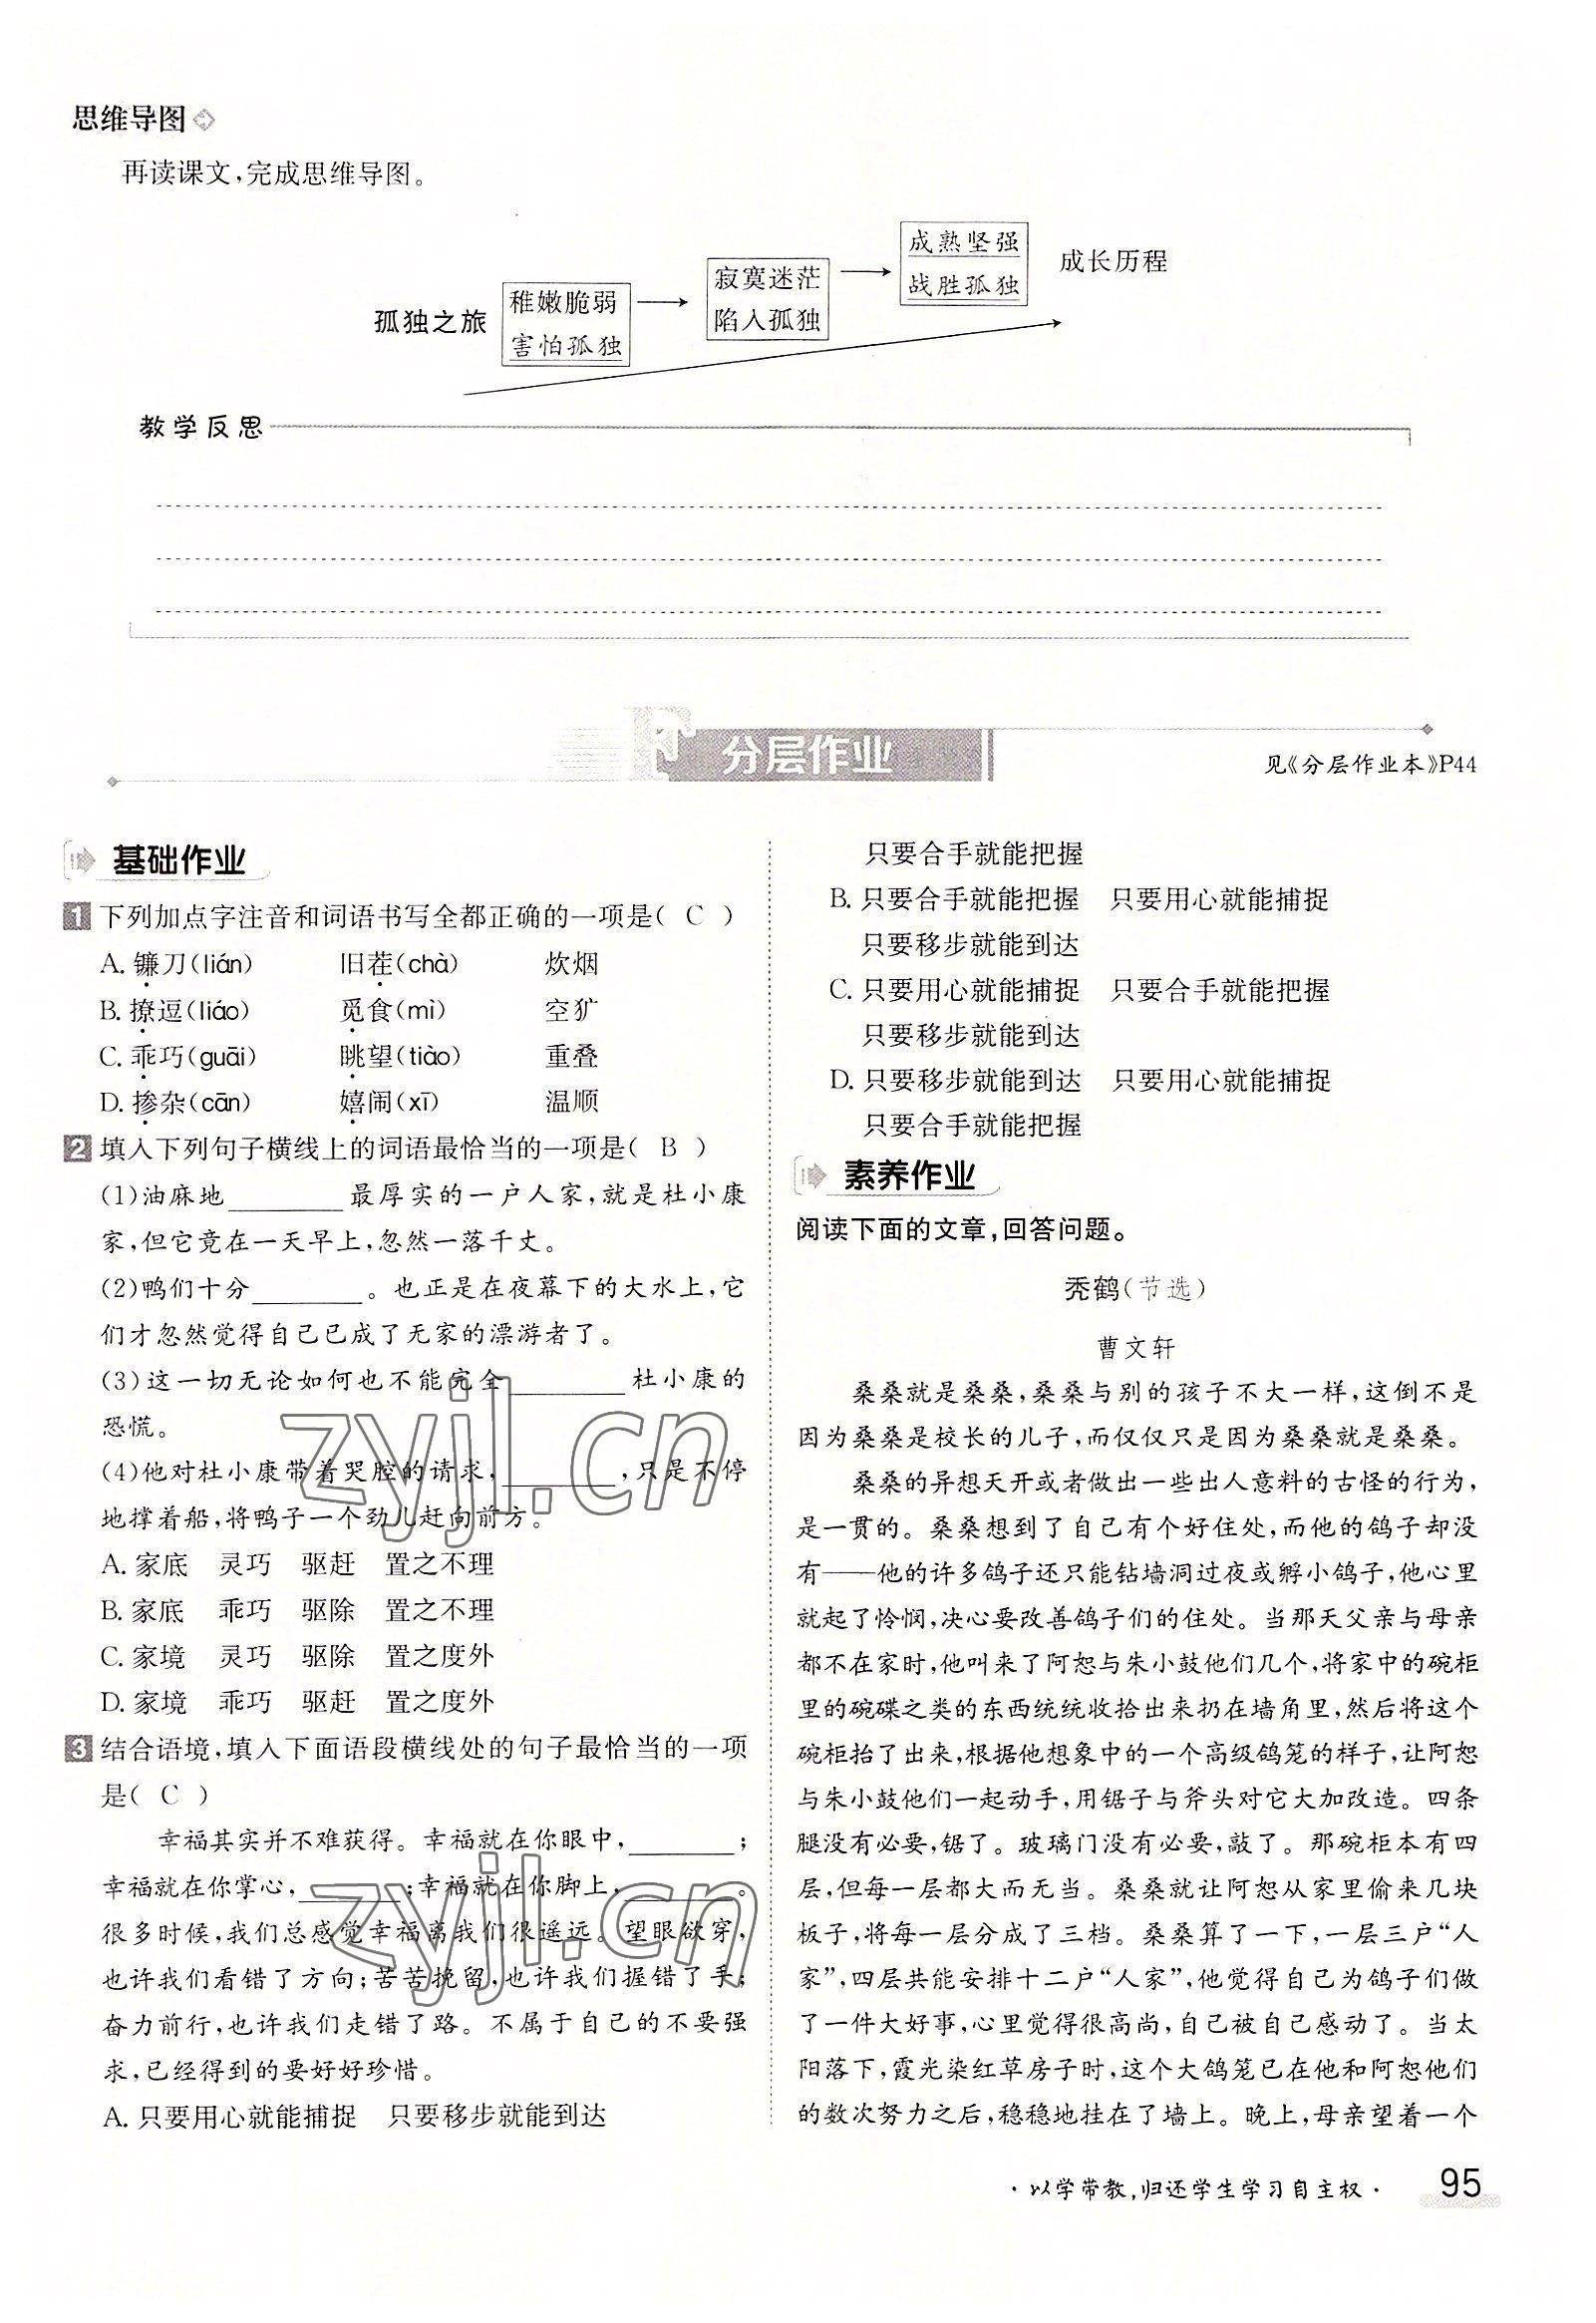 思维导图
再读课文,完成思维导图。
成熟坚强
战胜孤独
成长历程
寂寞迷茫
陷入孤独
孤独之旅
稚嫩脆弱
害怕孤独
教学反思
分层作业
见《分层作业本》P44
基础作业
1 下列加点字注音和词语书写全都正确的一项是( C )
A. 镰刀(lián) 旧茬(chà) 炊烟
B. 撩逗(liáo) 觅食(mì) 空犷
C. 乖巧(guāi) 眺望(tiào) 重叠
D. 掺杂(cān) 嬉闹(xī) 温顺
2 填入下列句子横线上的词语最恰当的一项是( B )
(1)油麻地________最厚实的一户人家,就是杜小康
家,但它竟在一天早上,忽然一落千丈。
(2)鸭们十分________。也正是在夜幕下的大水上,它
们才忽然觉得自己已成了无家的漂游者了。
(3)这一切无论如何也不能完全________杜小康的
恐慌。
(4)他对杜小康带着哭腔的请求,________,只是不停
地撑着船,将鸭子一个劲儿赶向前方。
A. 家底 灵巧 驱赶 置之不理
B. 家底 乖巧 驱除 置之不理
C. 家境 灵巧 驱除 置之度外
D. 家境 乖巧 驱赶 置之度外
3 结合语境,填入下面语段横线处的句子最恰当的一项
是( C )
幸福其实并不难获得。幸福就在你眼中,________;
幸福就在你掌心,________;幸福就在你脚上,________。
很多时候,我们总感觉幸福离我们很遥远。望眼欲穿,
也许我们看错了方向;苦苦挽留,也许我们握错了手;
奋力前行,也许我们走错了路。不属于自己的不要强
求,已经得到的要好好珍惜。
A. 只要用心就能捕捉 只要移步就能到达
只要合手就能把握
B. 只要合手就能把握 只要用心就能捕捉
只要移步就能到达
C. 只要用心就能捕捉 只要合手就能把握
只要移步就能到达
D. 只要移步就能到达 只要用心就能捕捉
只要合手就能把握
素养作业
阅读下面的文章,回答问题。
秃鹤(节选)
曹文轩
桑桑就是桑桑,桑桑与别的孩子不大一样,这倒不是
因为桑桑是校长的儿子,而仅仅只是因为桑桑就是桑桑。
桑桑的异想天开或者做出一些出人意料的古怪的行为,
是一贯的。桑桑想到了自己有个好住处,而他的鸽子却没
有——他的许多鸽子还只能钻墙洞过夜或孵小鸽子,他心里
就起了怜悯,决心要改善鸽子们的住处。当那天父亲与母亲
都不在家时,他叫来了阿恕与朱小鼓他们几个,将家中的碗柜
里的碗碟之类的东西统统收拾出来扔在墙角里,然后将这个
碗柜抬了出来,根据他想象中的一个高级鸽笼的样子,让阿恕
与朱小鼓他们一起动手,用锯子与斧头对它大加改造。四条
腿没有必要,锯了。玻璃门没有必要,敲了。那碗柜本有四
层,但每一层都大而无当。桑桑就让阿恕从家里偷来几块
板子,将每一层分成了三档。桑桑算了一下,一层三户“人
家”,四层共能安排十二户“人家”,他觉得自己为鸽子们做
了一件大好事,心里觉得很高尚,自己被自己感动了。当太
阳落下,霞光染红草房子时,这个大鸽笼已在他和阿恕他们
的数次努力之后,稳稳地挂在了墙上。晚上,母亲望着一个
·以学带教,归还学生学习自主权·
95
zyjl.cn
zyjl.cn